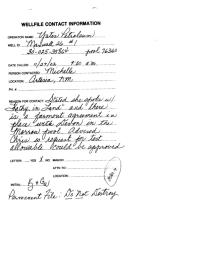 WELLFILE CONTACT INFORMATION
OPERATOR NAME: Yates Petroleum
WELL ID: Maxwell 26 #1
30-025-35864 pool 76360
DATE CALLED: 11/27/02 9:30 a.m.
PERSON CONTACTED: Michelle
LOCATION: Artesia, N.M.
PH. #
REASON FOR CONTACT: Stated she spoke w/
Kathy in Land and there
is a farmout agreement in
place with in the
Morrow pool. Advised
Chris's request for test
allowable could be approved
LETTER YES X NO MAILED:
ATTN TO:
LOCATION:
INITIAL
Permanent File: Do Not Destroy